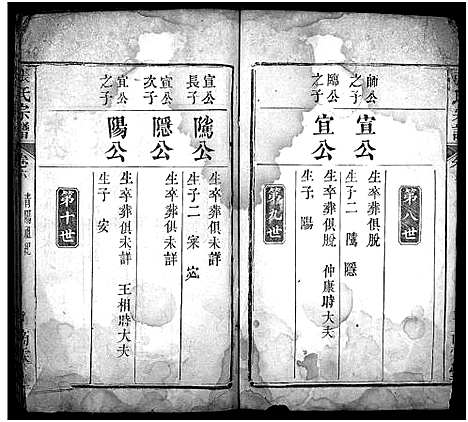 第八世
師公
之子
宣公
生卒葬俱脫
生子二 隲 隱
鷗公
之子
宣公
生卒葬俱脫 仲康時大夫
生子 陽
第九世
宣公
長子
隲公
生卒葬俱未詳
生子二 寀 寍
宣公
次子
隱公
生卒葬俱未詳
宣公
之子
陽公
生卒葬俱未詳 王相時大夫
生子 安
第十世
氏宗譜